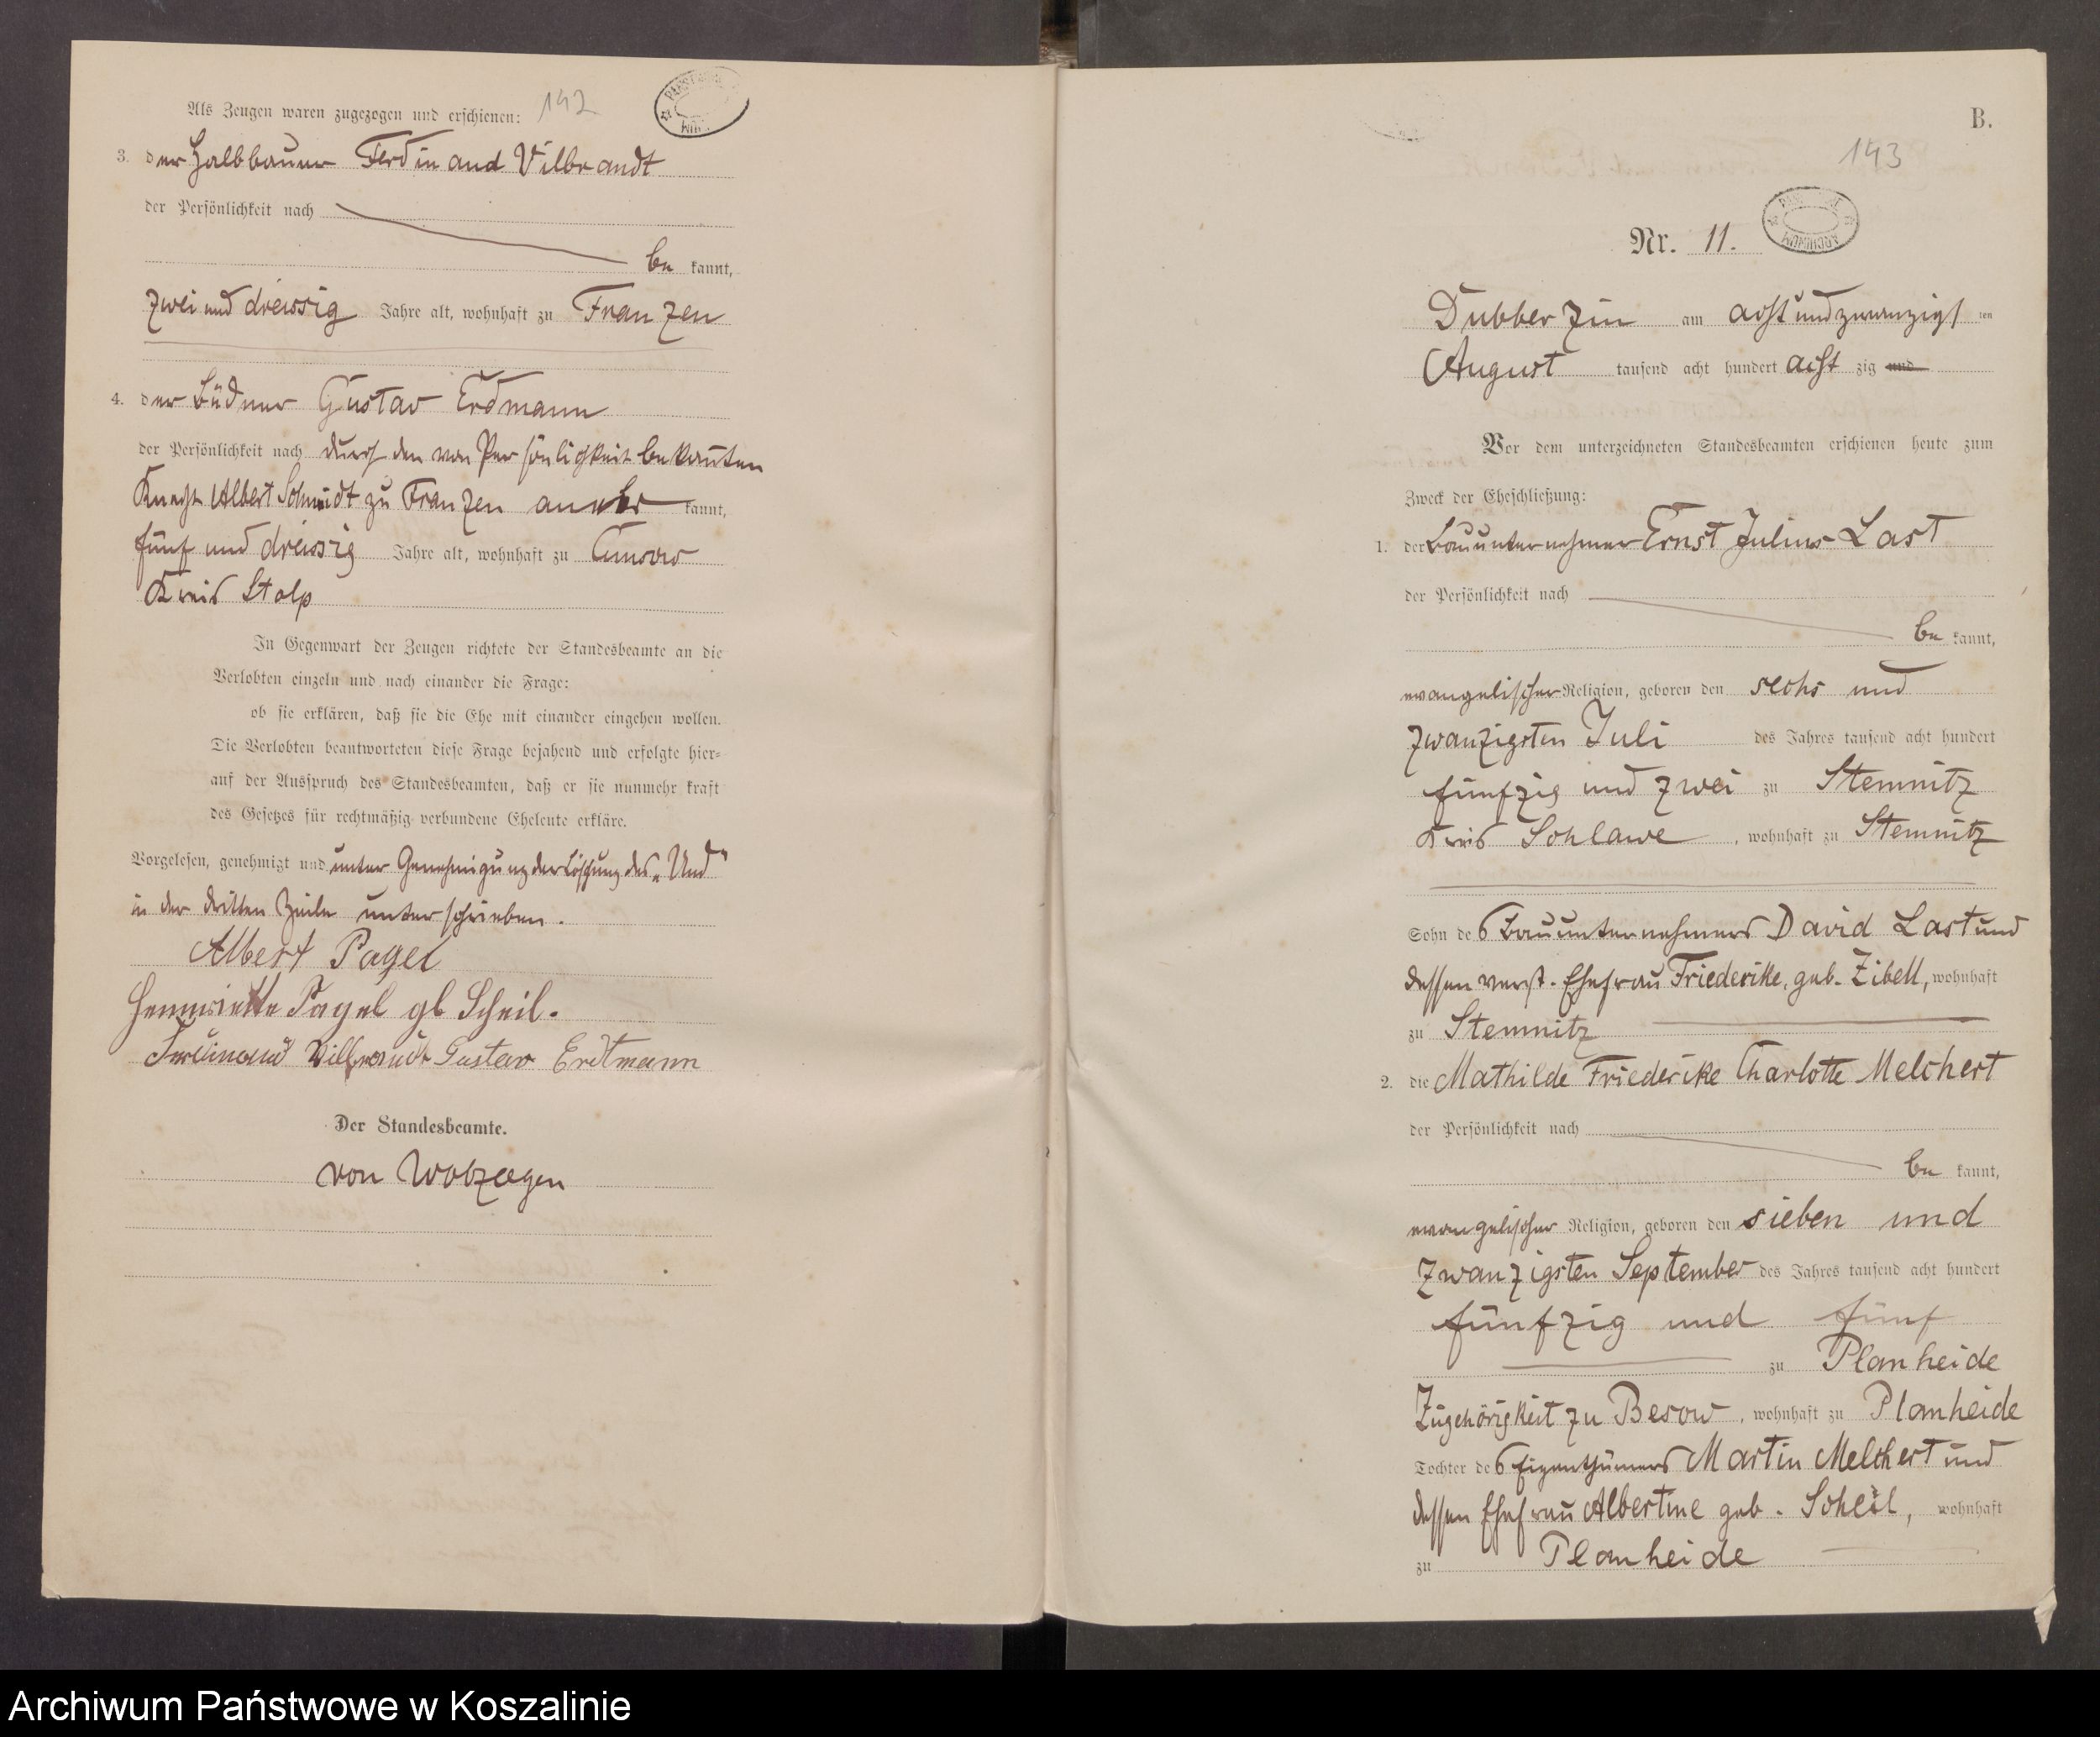 Als Zeugen waren zugezogen und erschienen:
142
3. der Halbbauer Ferdinand Vilbrandt
der Persönlichkeit nach
be kannt,
zwei und dreissig Jahre alt, wohnhaft zu Franzen
4. der Büdner Gustav Erdmann
der Persönlichkeit nach durch den von Persönlichkeit bekannten
Knecht Albert Schmidt zu Franzen aner kannt,
fünf und dreissig Jahre alt, wohnhaft zu Cunsow
Kreis Stolp
In Gegenwart der Zeugen richtete der Standesbeamte an die
Verlobten einzeln und nach einander die Frage:
ob sie erklären, daß sie die Ehe mit einander eingehen wollen.
Die Verlobten beantworteten diese Frage bejahend und erfolgte hier-
auf der Ausspruch des Standesbeamten, daß er sie nunmehr kraft
des Gesetzes für rechtmäßig verbundene Eheleute erkläre.
Vorgelesen, genehmigt und unter Genehmigung der Löschung des „Und"
in der dritten Zeile unterschrieben.
Albert Pagel
Hennriette Pagel gb Scheil.
Ferdinand Villbrandt Gustav Erdtmann
Der Standesbeamte.
von
B.
143
Nr. 11.
ARCHIWUM
Dubberzin am achtundzwanzigsten
August tausend acht hundert acht zig und
Vor dem unterzeichneten Standesbeamten erschienen heute zum
Zweck der Eheschließung:
1. der Bauunternehmer Ernst Julius Last
der Persönlichkeit nach
be kannt,
evangelischer Religion, geboren den sechs und
zwanzigsten Juli des Jahres tausend acht hundert
fünfzig und zwei zu Stemnitz
Kreis Schlawe, wohnhaft zu Stemnitz
Sohn des Bauunternehmers David Last und
dessen verst. Ehefrau Friederike, geb. Zibell, wohnhaft
zu Stemnitz
2. die Mathilde Friederike Charlotte Melchert
der Persönlichkeit nach
be kannt,
evangelischer Religion, geboren den sieben und
zwanzigsten September des Jahres tausend acht hundert
fünfzig und fünf
zu Planheide
Zugehörigkeit zu Besow, wohnhaft zu Planheide
Tochter des Eigenthümers Martin Melchert und
dessen Ehefrau Albertine geb. Scheil, wohnhaft
zu Planheide
Archiwum Państwowe w Koszalinie